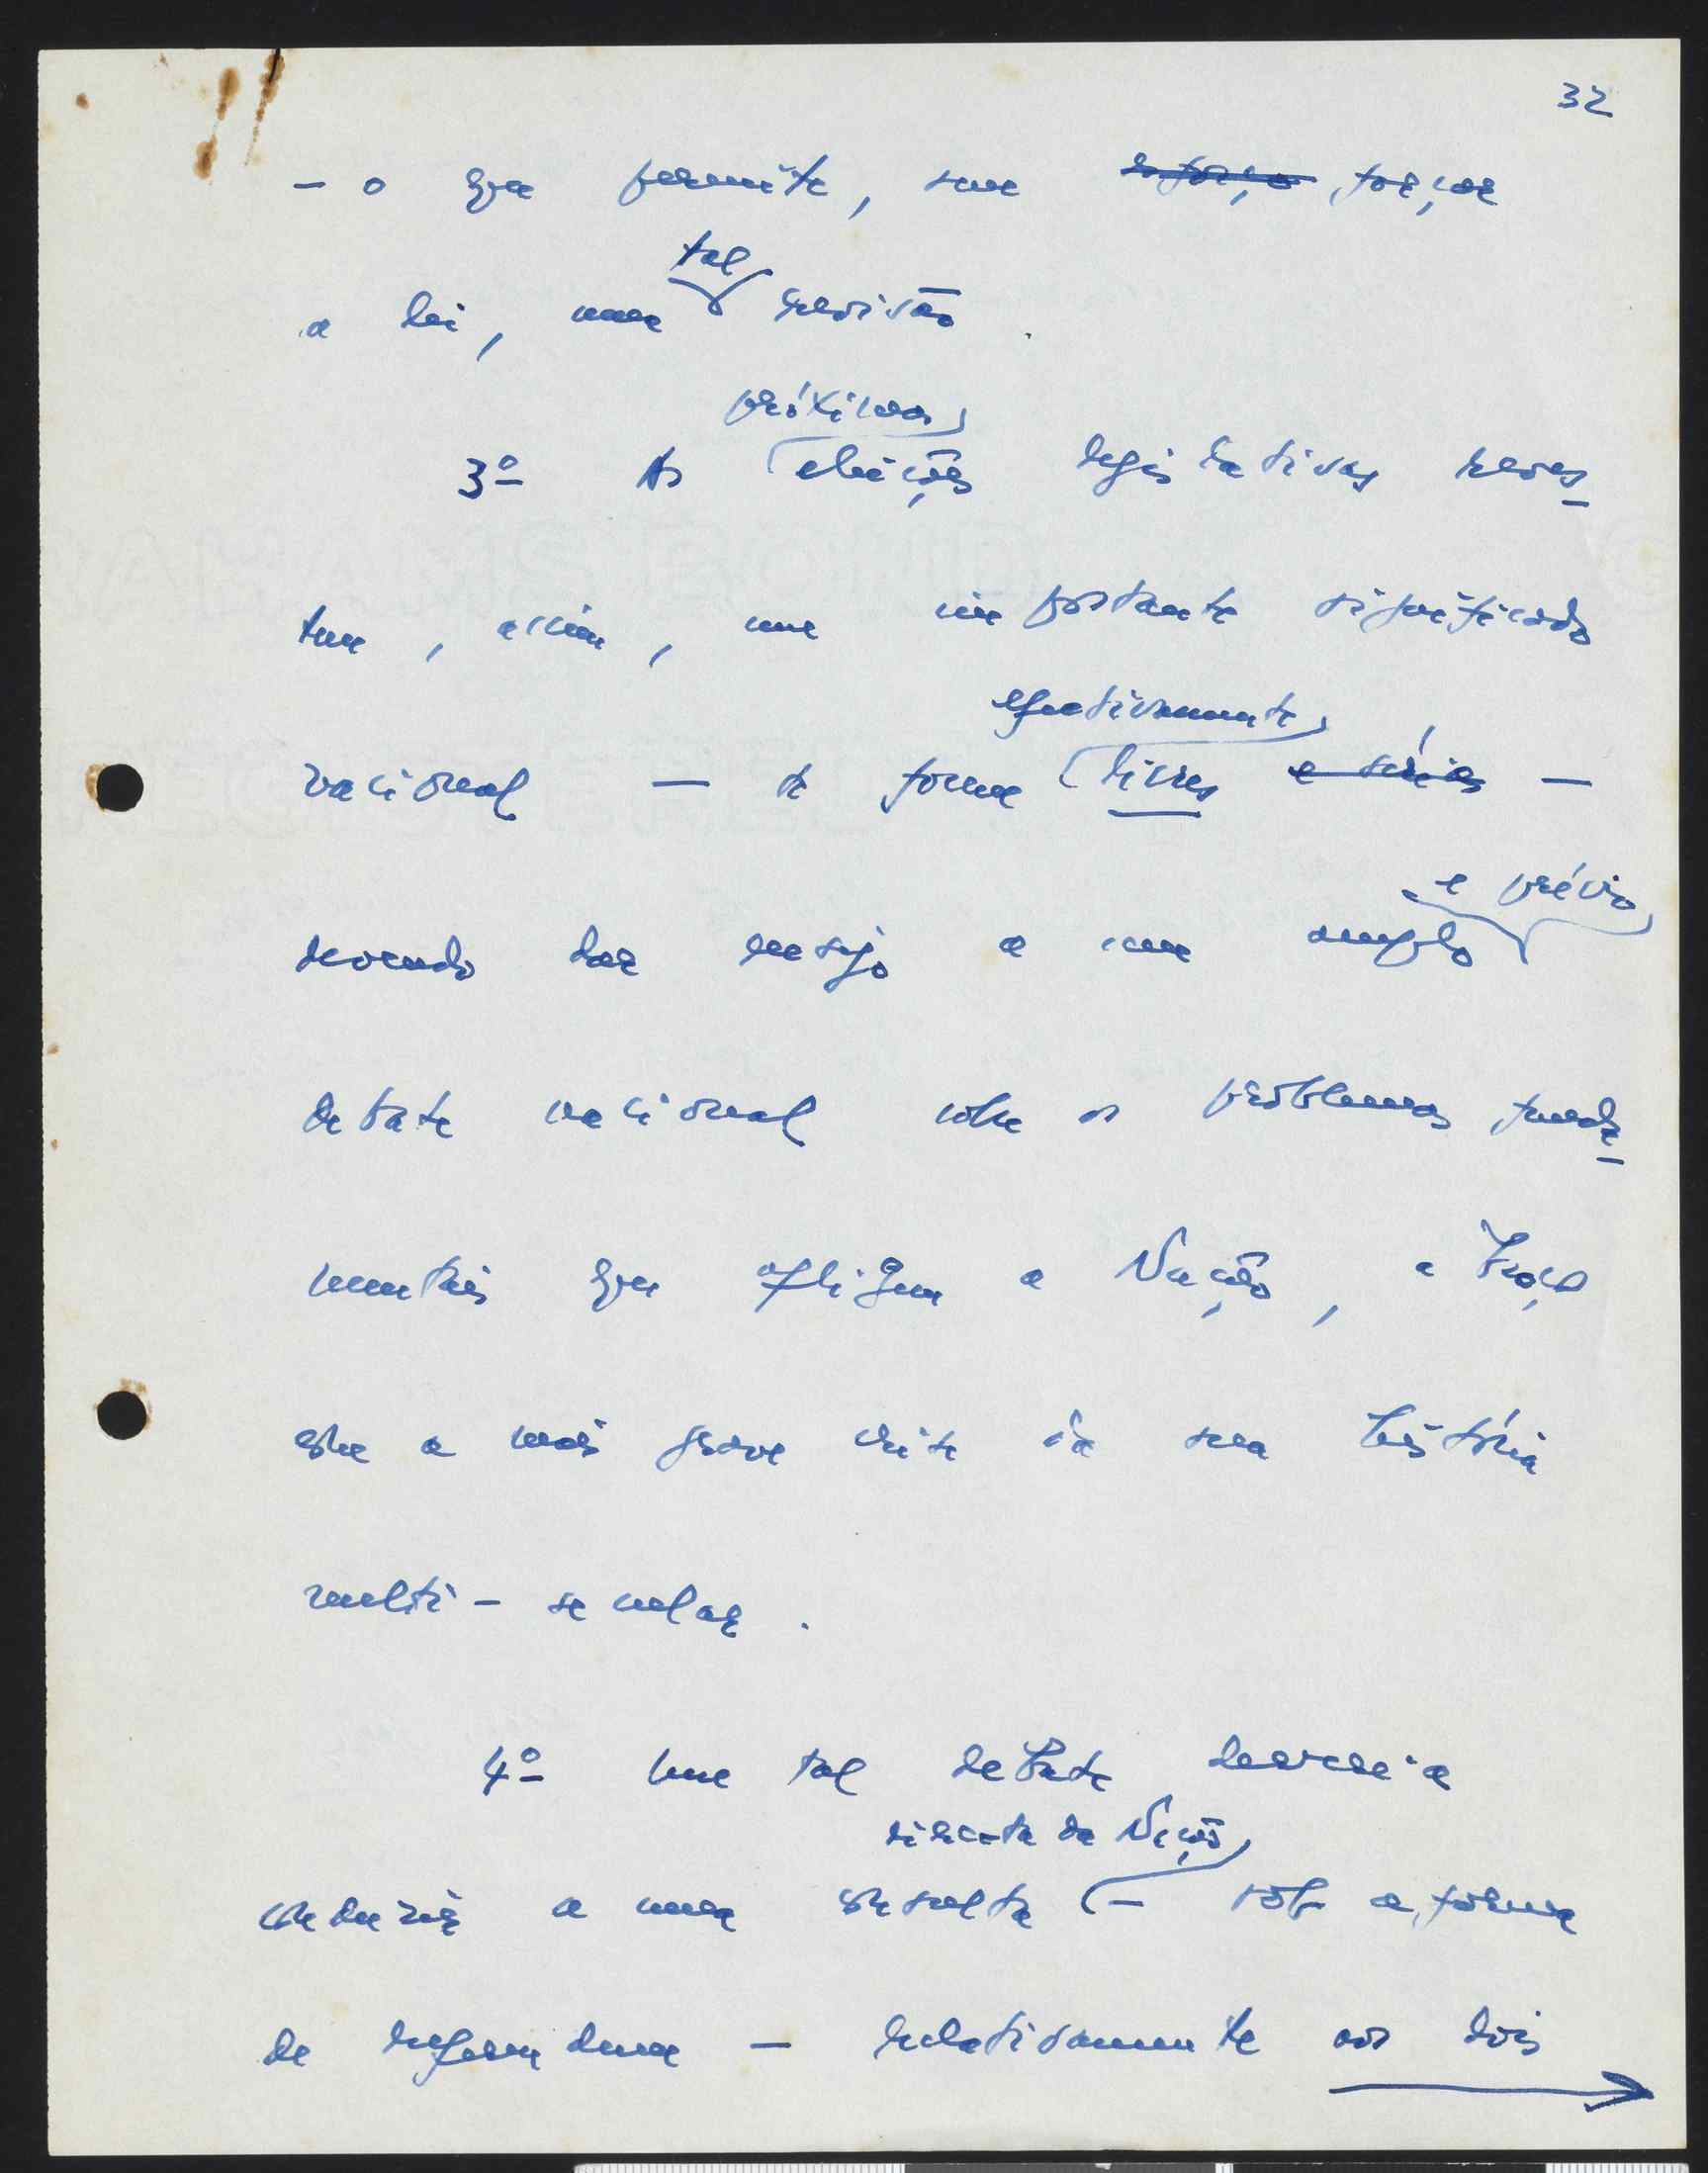 32
- o que permite, sem ~~esforço~~ forçar
tal
a lei, uma revisão.
próximas
3º As eleições legislativas reves-
tem, assim, um importante significado
efectivamente
nacional — se forem livres ~~e sérias~~ —
e prévio
devendo dar ensejo a um amplo
debate nacional sobre os problemas funda-
mentais que afligem a Nação, a braços
com a mais grave crise da sua história
multi-secular.
4º Um tal debate deveria
directa da Nação
conduzir a uma consulta — sob a forma
de referendum — relativamente aos dois